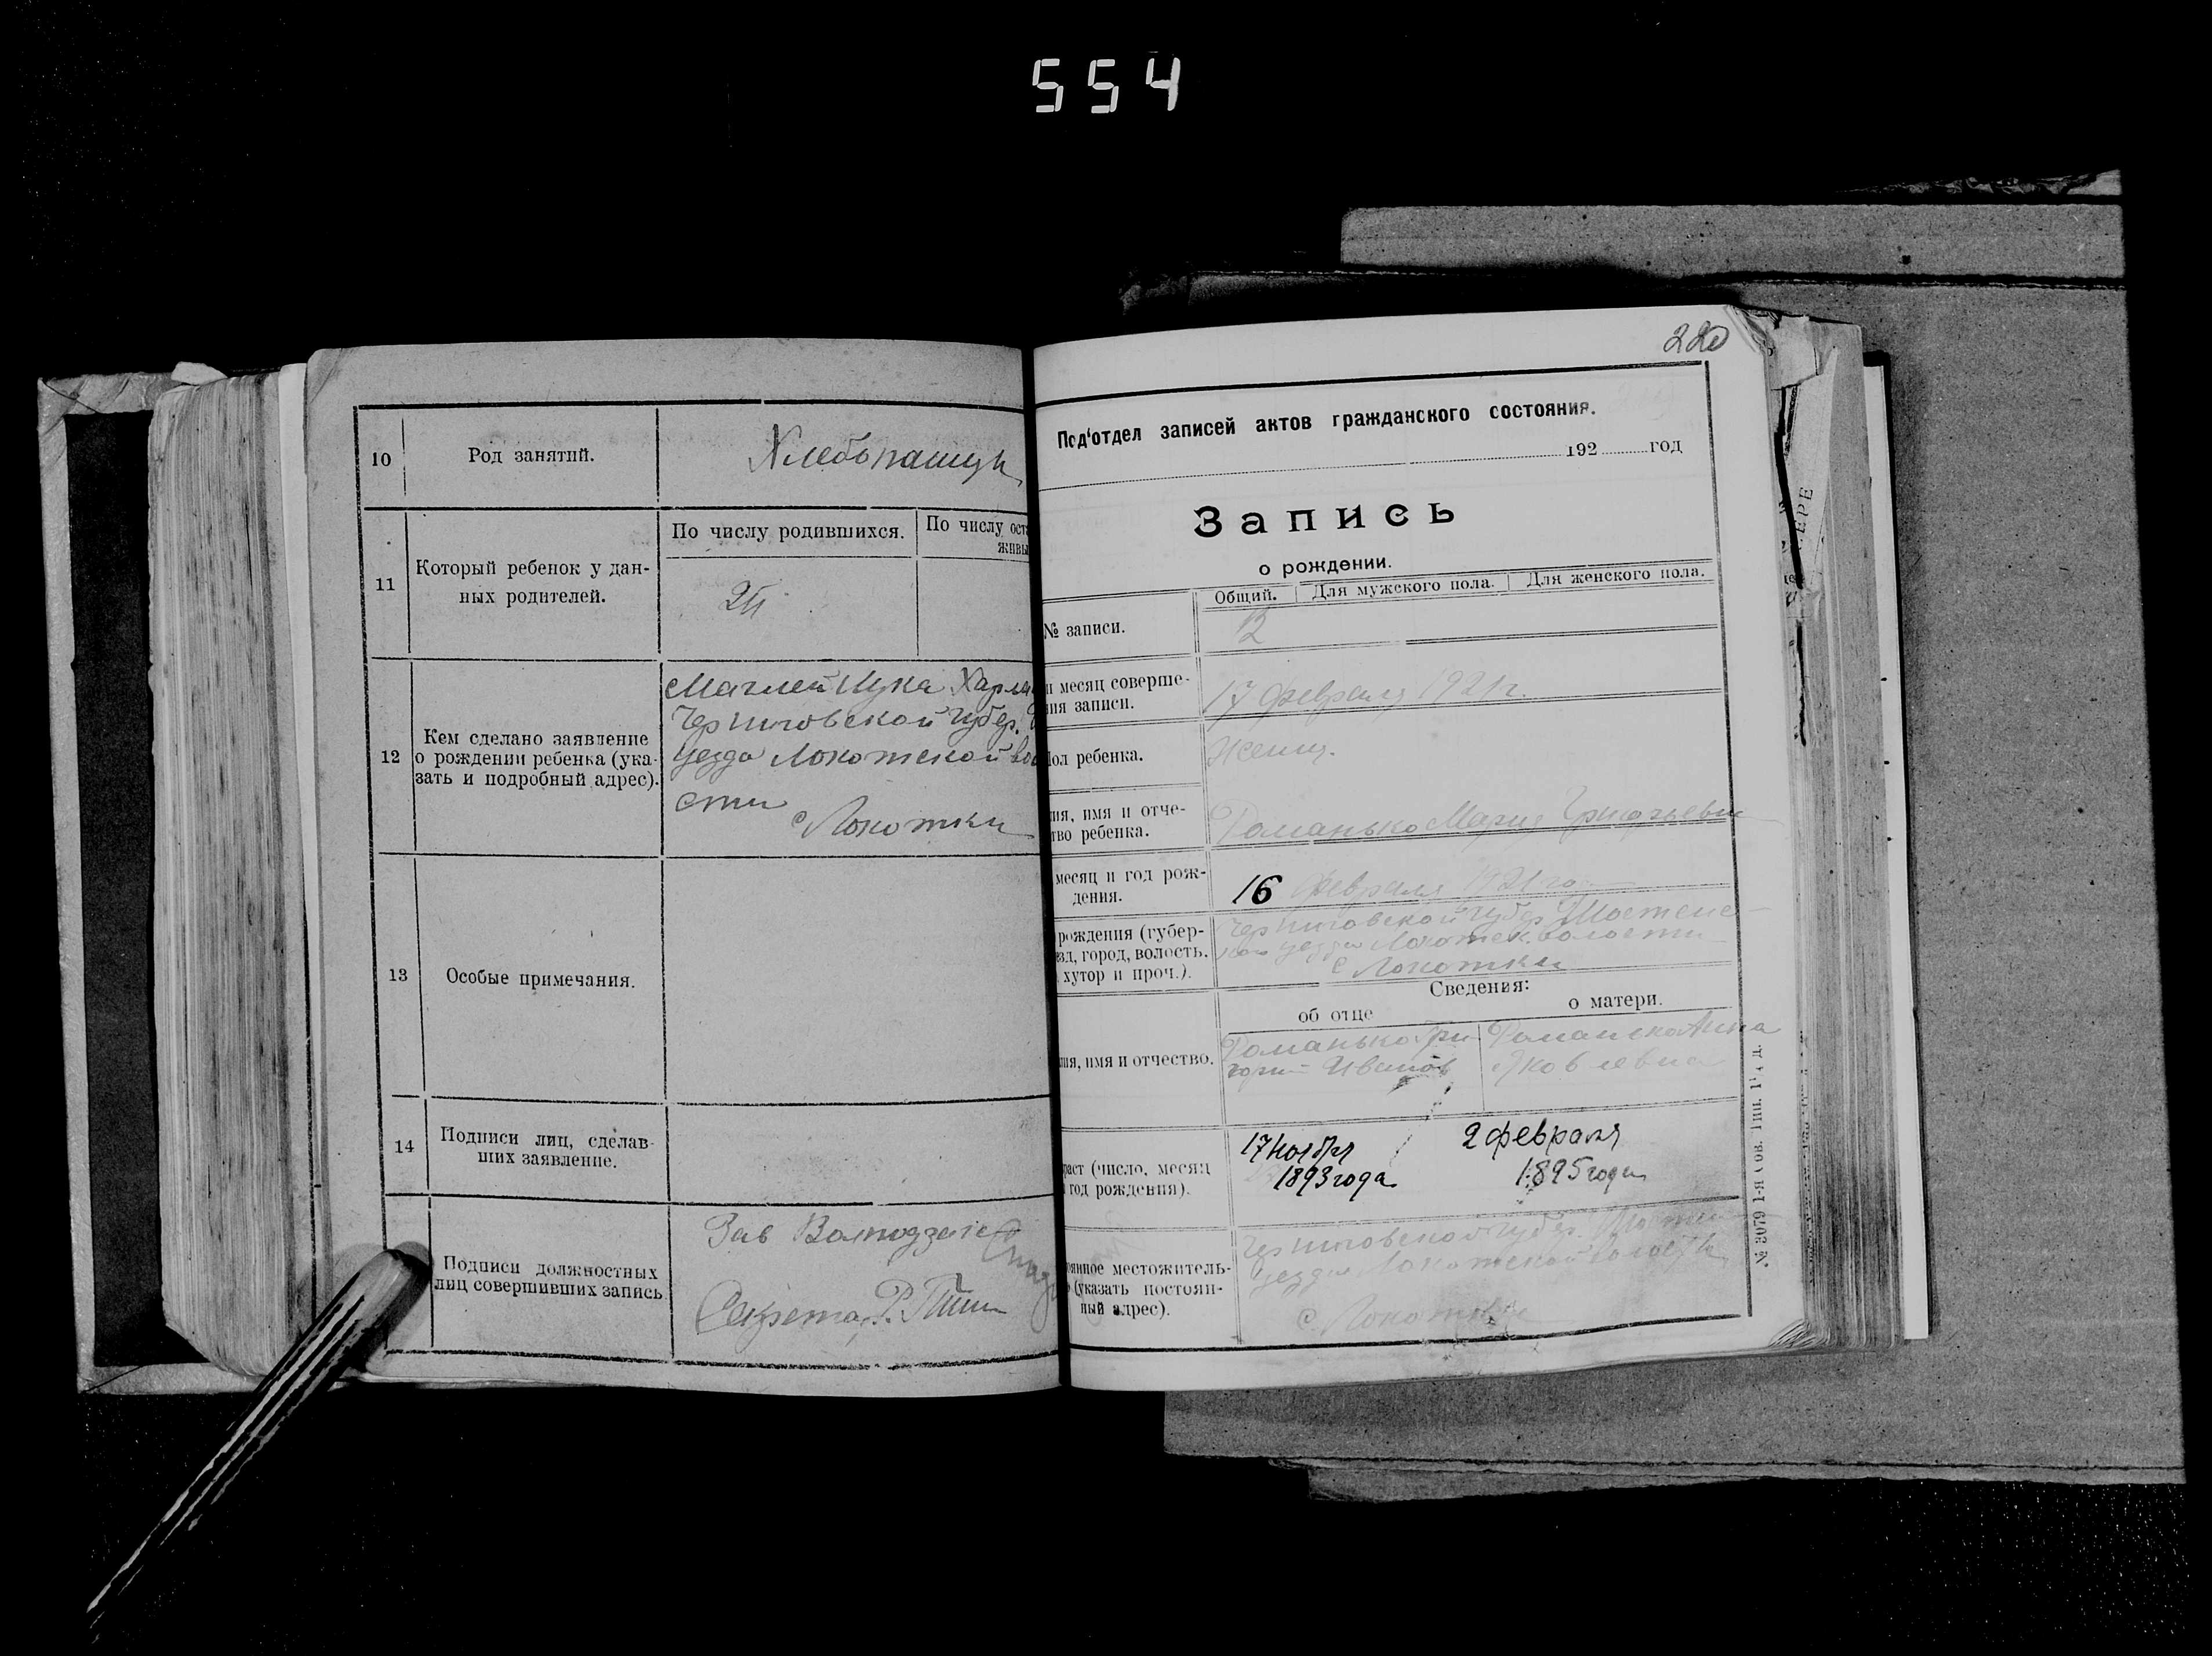 554
10
Род занятий.
Хлебопашец
11
Который ребенок у дан-
ных родителей.
По числу родившихся.
По числу ост
живы
2й
12
Кем сделано заявление
о рождении ребенка (ука-
зать и подробный адрес).
Лука Харла
Черниговской губер.
уезда Локотской вол
сти
с Локотки
13
Особые примечания.
14
Подписи лиц, сделав-
ших заявление.
Подписи должностных
лиц совершивших запись.
Зав
Секретар
220
Под'отдел записей актов гражданского состояния.
192 год
Запись
о рождении.
Общий. Для мужского пола. Для женского пола.
№ записи.
12
и месяц соверше-
ния записи.
17 февраля 1921 г.
Пол ребенка.
Женщ.
ия, имя и отче-
тво ребенка.
Романько Мария Григорьевн
месяц и год рож-
дения.
16 февраля 1921 го
рождения (губер-
езд, город, волость,
хутор и проч.).
Черниговской губер Шостенс
кого уезда Локотск. волости
с Локотки
Сведения:
об отце
о матери.
ия, имя и отчество.
Романько Гри
горий Иванов
Романько Анна
Яковлевна
раст (число, месяц
год рождения).
17 ноября
1893 года
2 февраля
1895 года
оянное местожитель-
о (указать постоян-
ный адрес).
Черниговской губер.
уезда Локотской волости
с. Локотки
№ 3079 1-я Сов. Тип.